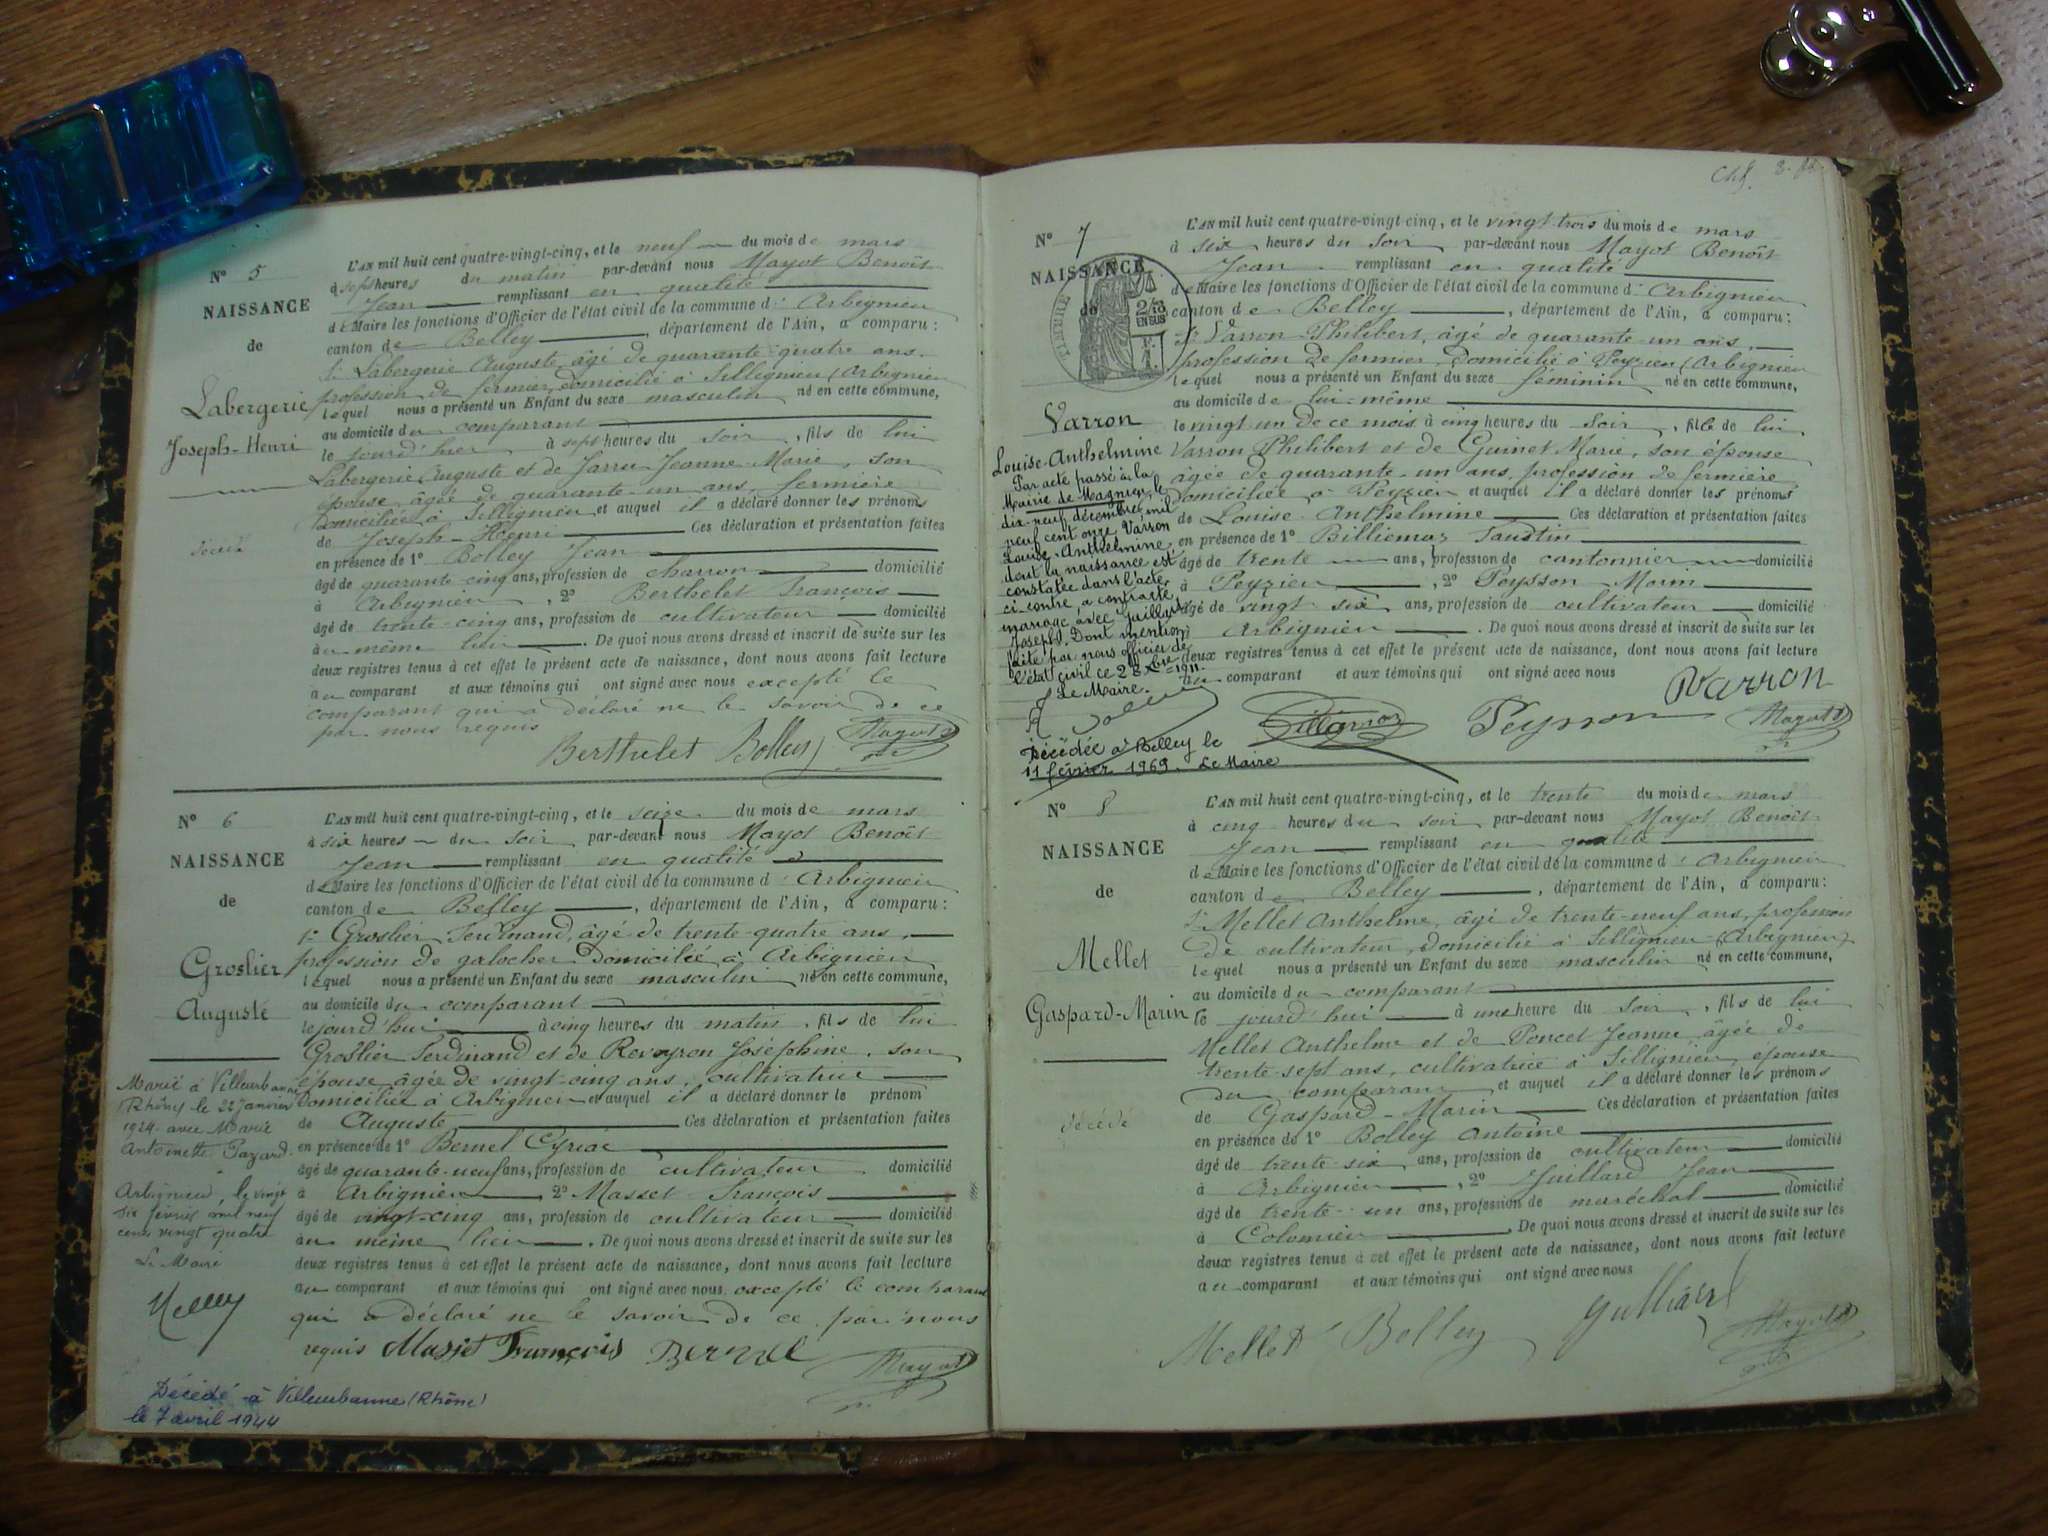 N° 5
NAISSANCE
de
Labergerie
Joseph-Henri
décédé
L'AN mil huit cent quatre-vingt-cinq, et le neuf du mois de mars
à sept heures du matin par-devant nous Mayot Benoît
Jean remplissant en qualité
de Maire les fonctions d'Officier de l'état civil de la commune d'Arbignieu
canton de Belley, département de l'Ain, a comparu:
Sr Labergerie Auguste âgé de quarante quatre ans,
profession de fermier, domicilié à Sillignieu (Arbignieu
lequel nous a présenté un Enfant du sexe masculin né en cette commune,
au domicile du comparant
le jourd'hier à sept heures du soir, fils de lui
Labergerie Auguste et de Jarru Jeanne Marie, son
épouse âgée de quarante-un ans, fermière
domiciliée à Sillignieu et auquel il a déclaré donner les prénoms
de Joseph-Henri Ces déclaration et présentation faites
en présence de 1° Bolley Jean
âgé de quarante-cinq ans, profession de charron domicilié
à Arbignieu, 2° Berthelet François
âgé de trente-cinq ans, profession de cultivateur domicilié
au même lieu. De quoi nous avons dressé et inscrit de suite sur les
deux registres tenus à cet effet le présent acte de naissance, dont nous avons fait lecture
au comparant et aux témoins qui ont signé avec nous excepté le
comparant qui a déclaré ne le savoir de ce
par nous requis
Berthelet Bolley Mayot
N° 6
NAISSANCE
de
Groslier
Auguste
Marié à Villeurbanne
(Rhône) le 22 Janvier
1924 avec Marie
Antoinette Pazard.
Arbignieu, le vingt
six février mil neuf
cent vingt quatre
Le Maire
L'AN mil huit cent quatre-vingt-cinq, et le seize du mois de mars
à six heures du soir par-devant nous Mayot Benoît
Jean remplissant en qualité
de Maire les fonctions d'Officier de l'état civil de la commune d'Arbignieu
canton de Belley, département de l'Ain, a comparu:
Sr Groslier Ferdinand, âgé de trente-quatre ans,
profession de galocher domicilié à Arbignieu
lequel nous a présenté un Enfant du sexe masculin né en cette commune,
au domicile du comparant
le jourd'hui à cinq heures du matin, fils de lui
Groslier Ferdinand et de Reveyron Joséphine, son
épouse âgée de vingt-cinq ans, cultivatrice
domiciliée à Arbignieu et auquel il a déclaré donner le prénom
de Auguste Ces déclaration et présentation faites
en présence de 1° Bernel Cyriac
âgé de quarante-neuf ans, profession de cultivateur domicilié
à Arbignieu 2° Masset François
âgé de vingt-cinq ans, profession de cultivateur domicilié
au même lieu. De quoi nous avons dressé et inscrit de suite sur les
deux registres tenus à cet effet le présent acte de naissance, dont nous avons fait lecture
au comparant et aux témoins qui ont signé avec nous excepté le comparant
qui a déclaré ne le savoir de ce par nous
requis Masset François Bernel Mayot
Décédé à Villeurbanne (Rhône)
le 7 avril 1944
N° 7
NAISSANCE
de
TIMBRE
2/10
EN SUS
Varron
Louise-Anthelmine
Par acte passé à la
Mairie de Magnieu, le
dix-neuf décembre mil
neuf cent onze Varron
Louise-Anthelmine
dont la naissance est
constatée dans l'acte
ci-contre, a contracté
mariage avec Juillard
Joseph. Dont mention
faite par nous officier de
l'état civil ce 28 Xbre 1911.
Le Maire.
Décédée à Belley le
11 février 1969. Le Maire
L'AN mil huit cent quatre-vingt-cinq, et le vingt-trois du mois de mars
à six heures du soir par-devant nous Mayot Benoît
Jean remplissant en qualité
de Maire les fonctions d'Officier de l'état civil de la commune d'Arbignieu
canton de Belley, département de l'Ain, a comparu:
Sr Varron Philibert, âgé de quarante-un ans,
profession de fermier, domicilié à Peyzieu (Arbignieu
lequel nous a présenté un Enfant du sexe féminin né en cette commune,
au domicile de lui-même
le vingt un de ce mois à cinq heures du soir, fille de lui
Varron Philibert et de Guinet Marie, son épouse
âgée de quarante-un ans, profession de fermière
domiciliée à Peyzieu et auquel il a déclaré donner les prénoms
de Louise-Anthelmine Ces déclaration et présentation faites
en présence de 1° Billiemaz Faustin
âgé de trente ans, profession de cantonnier domicilié
à Peyzieu, 2° Peysson Marin
âgé de vingt six ans, profession de cultivateur domicilié
à Arbignieu. De quoi nous avons dressé et inscrit de suite sur les
deux registres tenus à cet effet le présent acte de naissance, dont nous avons fait lecture
au comparant et aux témoins qui ont signé avec nous
Varron
Peysson Mayot
N° 8
NAISSANCE
de
Mellet
Gaspard-Marin
décédé
L'AN mil huit cent quatre-vingt-cinq, et le trente du mois de mars
à cinq heures du soir par-devant nous Mayot Benoît
Jean remplissant en qualité
de Maire les fonctions d'Officier de l'état civil de la commune d'Arbignieu
canton de Belley, département de l'Ain, a comparu:
Sr Mellet Anthelme, âgé de trente-neuf ans, profession
de cultivateur, domicilié à Sillignieu (Arbignieu)
lequel nous a présenté un Enfant du sexe masculin né en cette commune,
au domicile du comparant
le jourd'hui à une heure du soir, fils de lui
Mellet Anthelme et de Poncet Jeanne âgée de
trente-sept ans, cultivatrice à Sillignieu, épouse
du comparant et auquel il a déclaré donner les prénoms
de Gaspard-Marin Ces déclaration et présentation faites
en présence de 1° Bolley Antoine
âgé de trente-six ans, profession de cultivateur domicilié
à Arbignieu, 2° Juillard Jean
âgé de trente-un ans, profession de maréchal domicilié
à Colomieu. De quoi nous avons dressé et inscrit de suite sur les
deux registres tenus à cet effet le présent acte de naissance, dont nous avons fait lecture
au comparant et aux témoins qui ont signé avec nous
Mellet Bolley Mayot